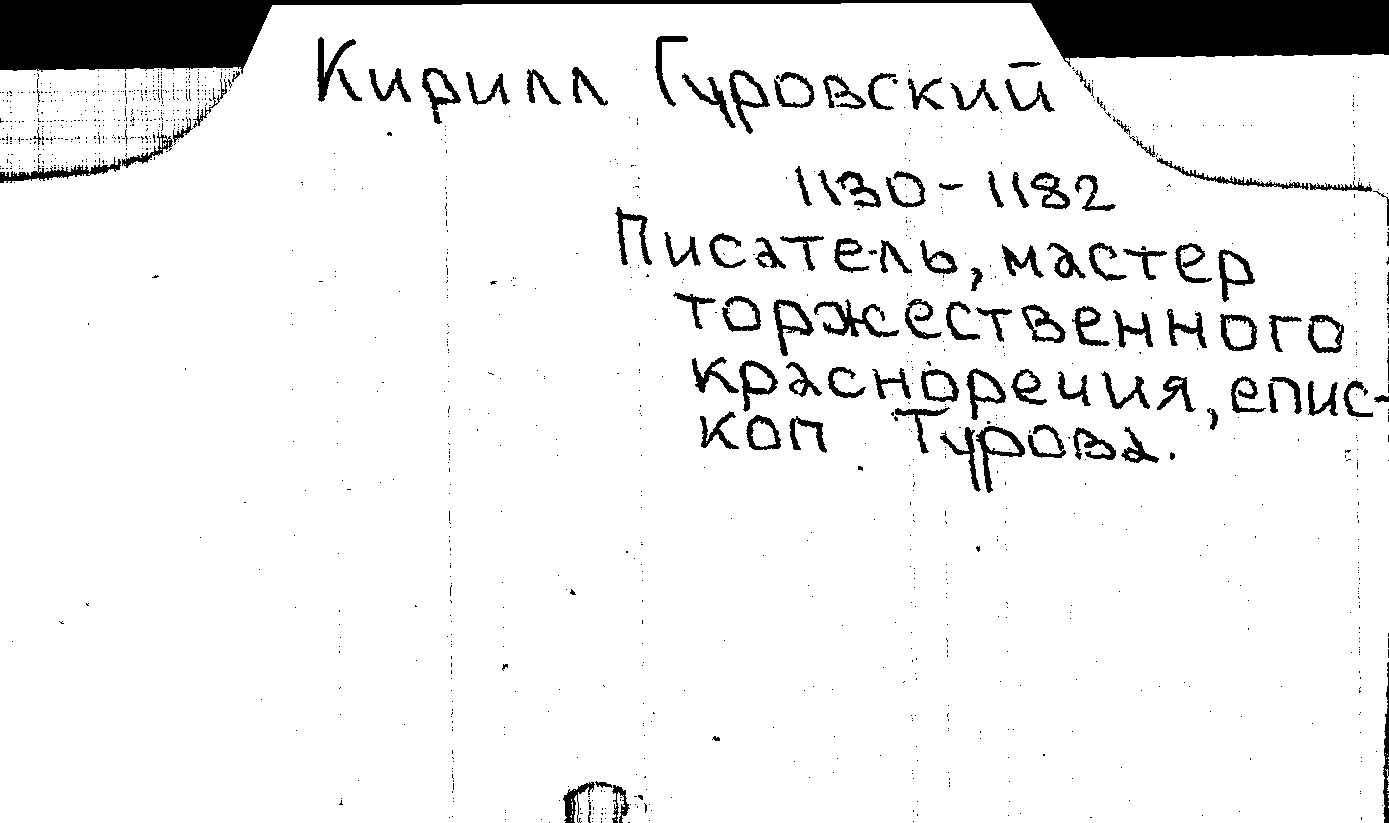 Кирилл Туровский
1130-1182
Писатель, мастер
торжественного
красноречия, епис-
коп Турова.